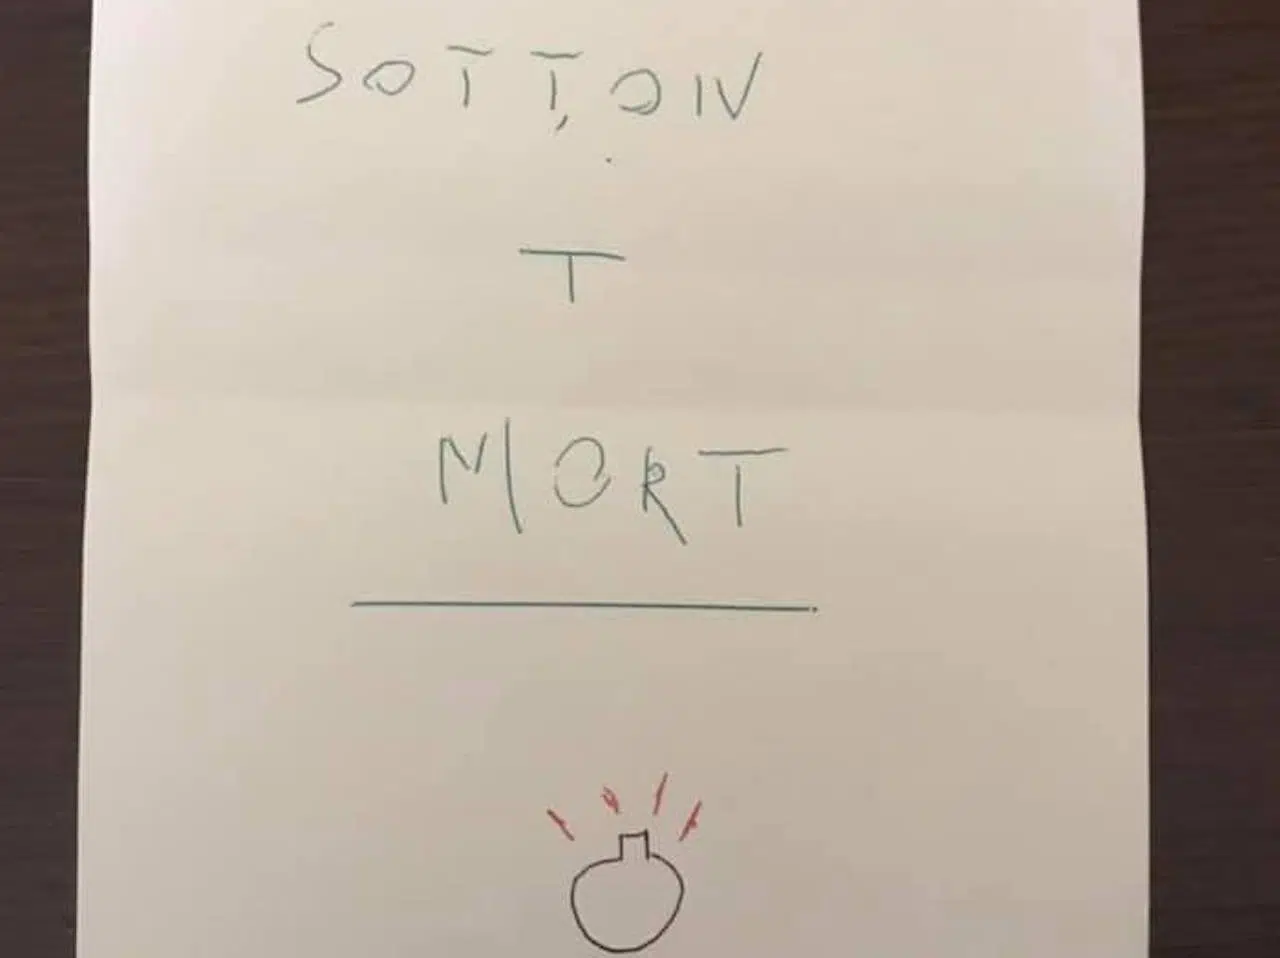 SOTT,ON
T
MORT